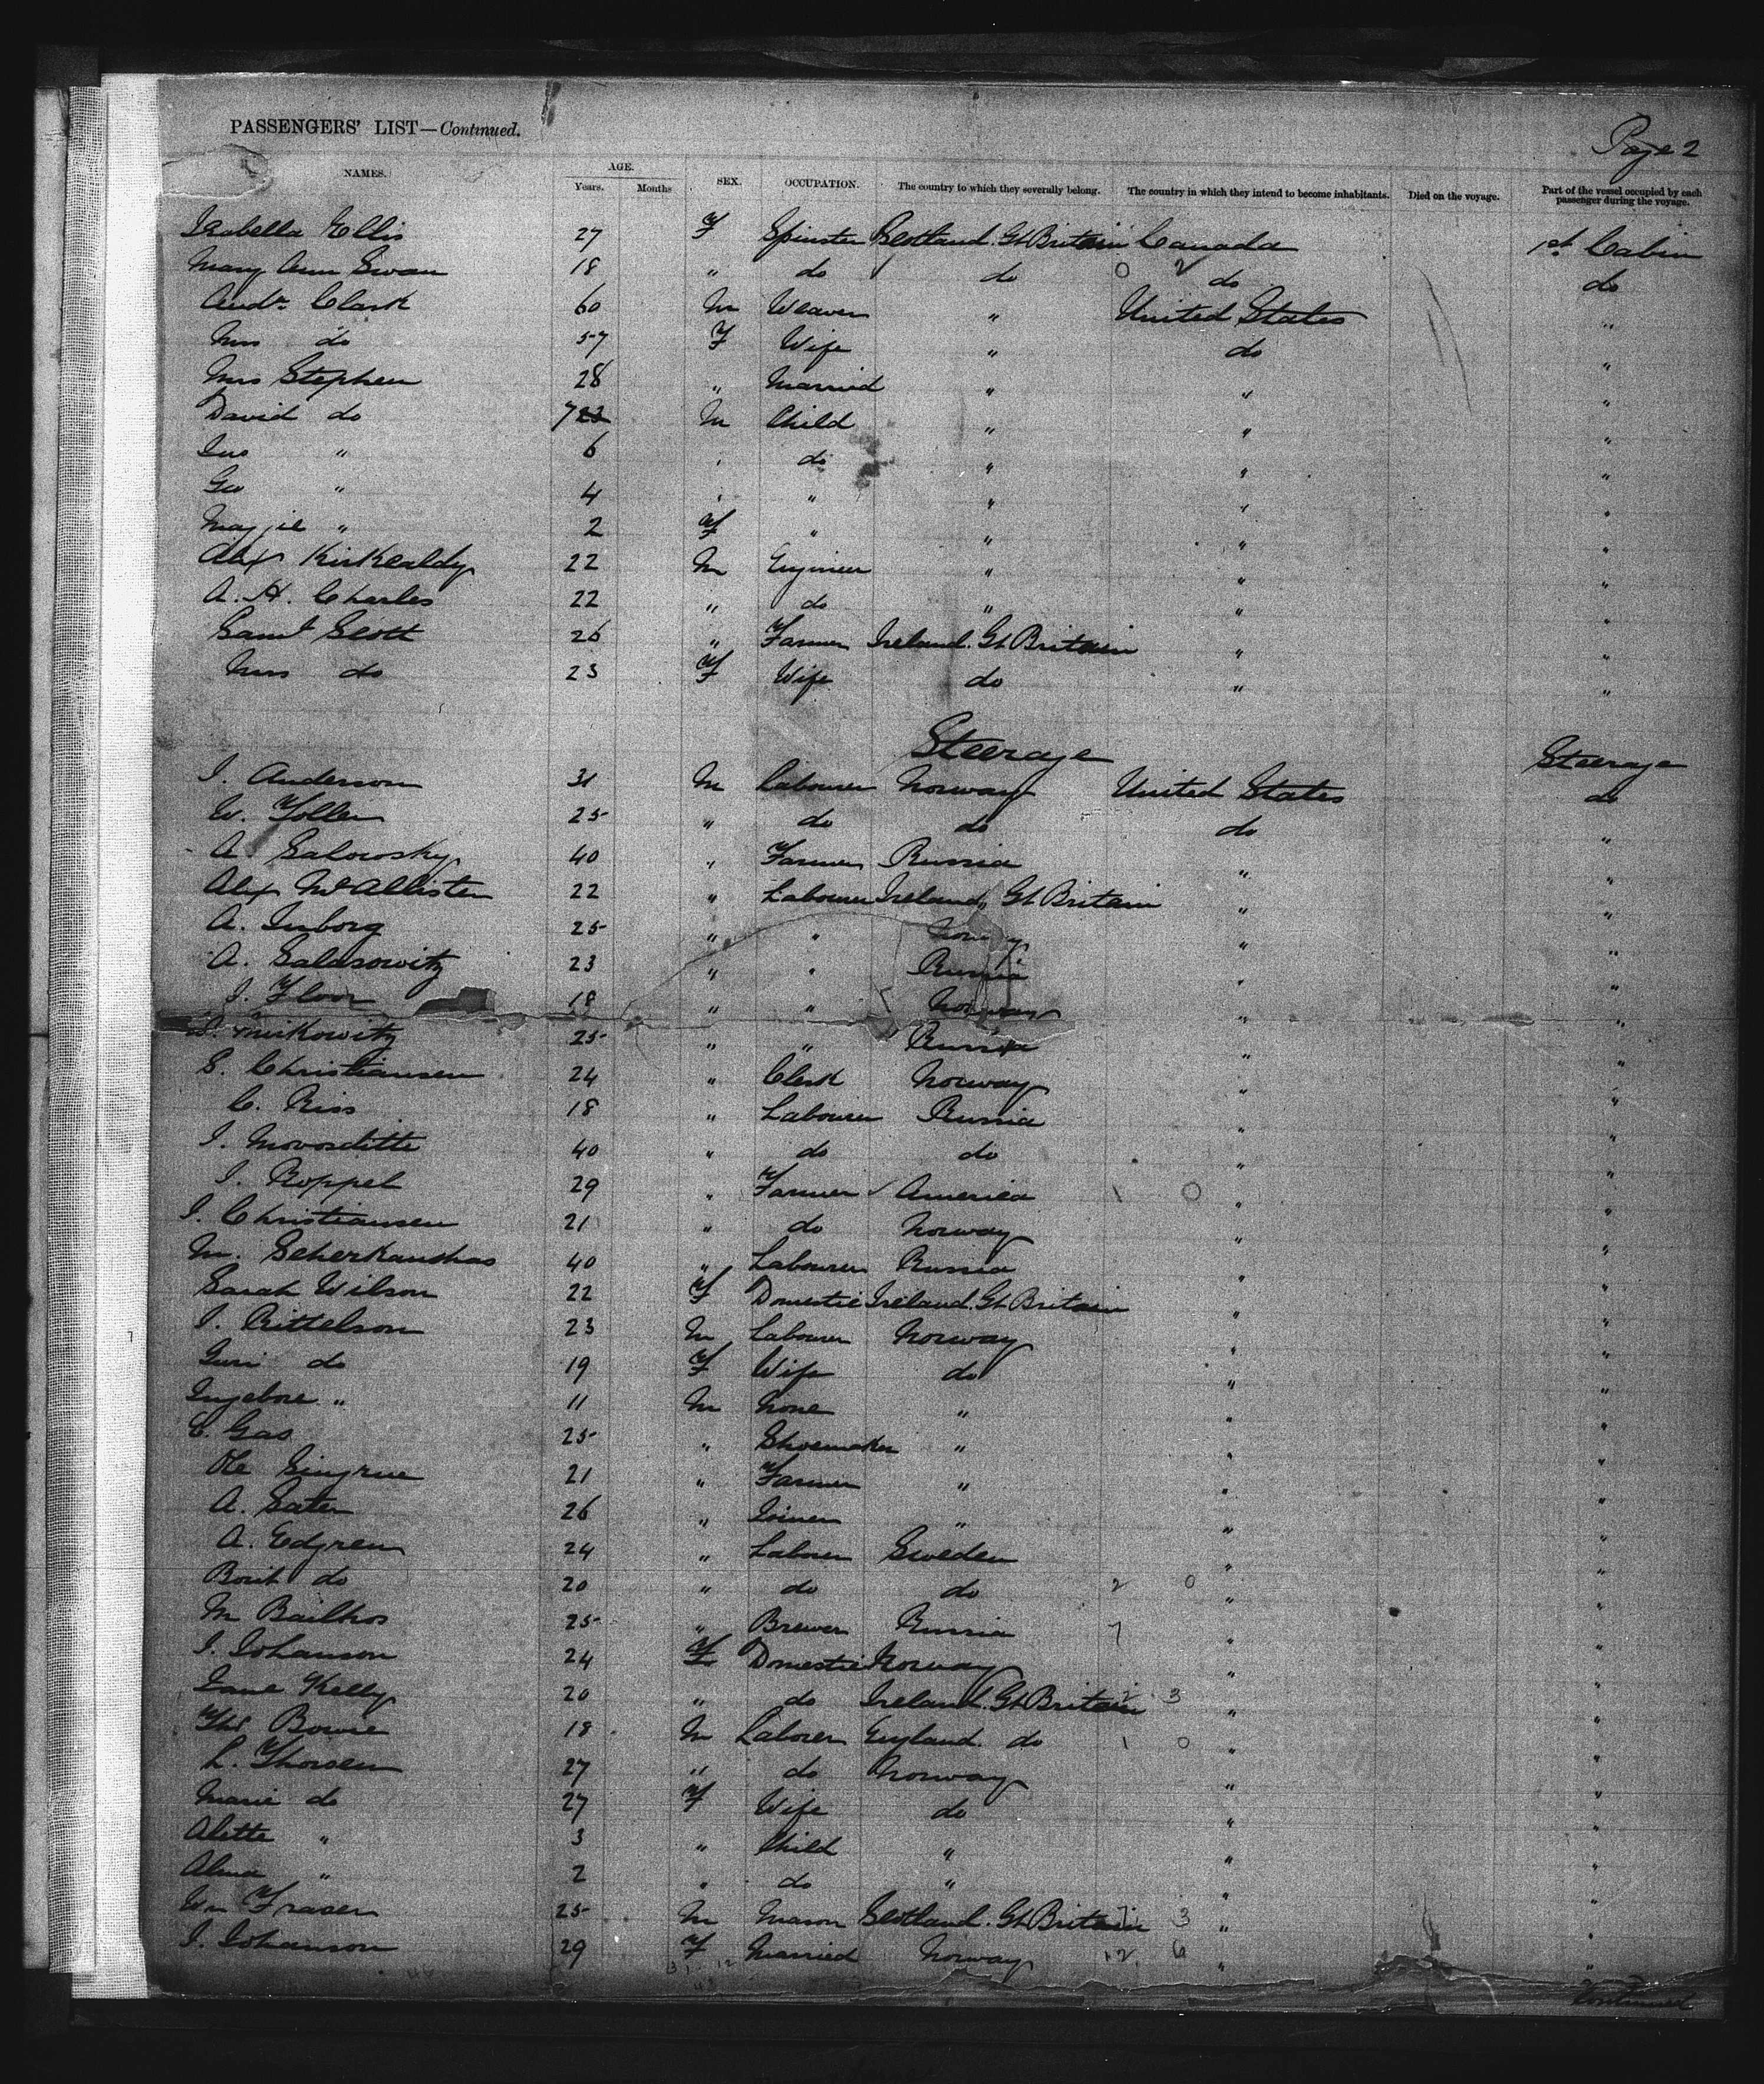 Page 2
PASSENGERS' LIST—Continued.
NAMES. AGE. Years. Months SEX. OCCUPATION. The country to which they severally belong. The country in which they intend to become inhabitants. Died on the voyage. Part of the vessel occupied by each passenger during the voyage.
Isabella Ellis 27 F Spinster Scotland. Gt Britain Canada 1st Cabin
Mary Ann Swan 18 " do do do do
Andw Clark 60 M Weaver " United States "
Mrs do 57 F Wife " do "
Mrs Stephen 28 " Married " " "
David do 7 M Child " " "
Jno " 6 " do " " "
Geo " 4 " " " " "
Maggie " 2 F " " " "
Alex Kirkcaldy 22 M Engineer " " "
A. H. Charles 22 " do " " "
Saml Scott 26 " Farmer Ireland. Gt Britain " "
Mrs do 23 F Wife do " "
Steerage Steerage
J. Anderson 31 M Labourer Norway United States do
W. Tollen 25 " do do do "
A. Salowsky 40 " Farmer Russia " "
Alex McAllister 22 " Labourer Ireland, Gt Britain " "
A. Inborg 25 " " Norway " "
A. Saldsowitz 23 " " Russia " "
J. Floor 18 " " Norway " "
mikowitz 25 " " Russia " "
S. Christiansen 24 " Clerk Norway " "
C. Riss 18 " Labourer Russia " "
J. Movosditte 40 " do do " "
J. Roppel 29 " Farmer America 1 0 " "
J. Christiansen 21 " do Norway " "
M. Scherkanskas 40 " Labourer Russia " "
Sarah Wilson 22 F Domestic Ireland. Gt Britain " "
J. Rittelson 23 M Labourer Norway " "
Guri do 19 F Wife do " "
Ingebore " 11 M None " " "
C. Gas 25 " Shoemaker " " "
Ole Singrue 21 " Farmer " " "
A. Sater 26 " Joiner " " "
A. Edgren 24 " Laborer Sweden " "
Borit do 20 " do do 2 0 " "
M Bailkos 25 " Brewer Russia 7 " "
J. Johanson 24 F Domestic Norway " "
Jane Kelly 20 " do Ireland. Gt Britain 2 3 " "
Thos Bowie 18 M Laborer England. do 1 0 " "
L. Thorsen 27 " do Norway " "
Marie do 27 F Wife do " "
Alette " 3 " Child " " "
Alma " 2 " do " " "
Wm Fraser 25 M Mason Scotland. Gt Britain 3 " "
J. Johanson 29 F Married Norway 12 6 " "
Continued